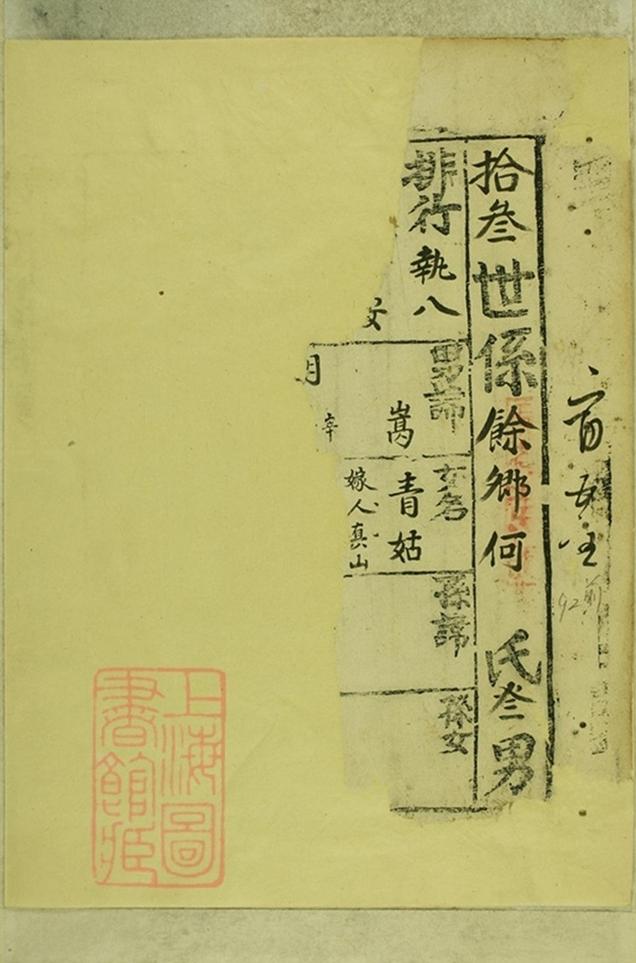 拾叄世係餘鄉何氏叄男
排行執八
女
男諱
嵩
月
卒
女名
青姑
嫁人真山
孫諱
孫女
前
92
上海圖
書館藏